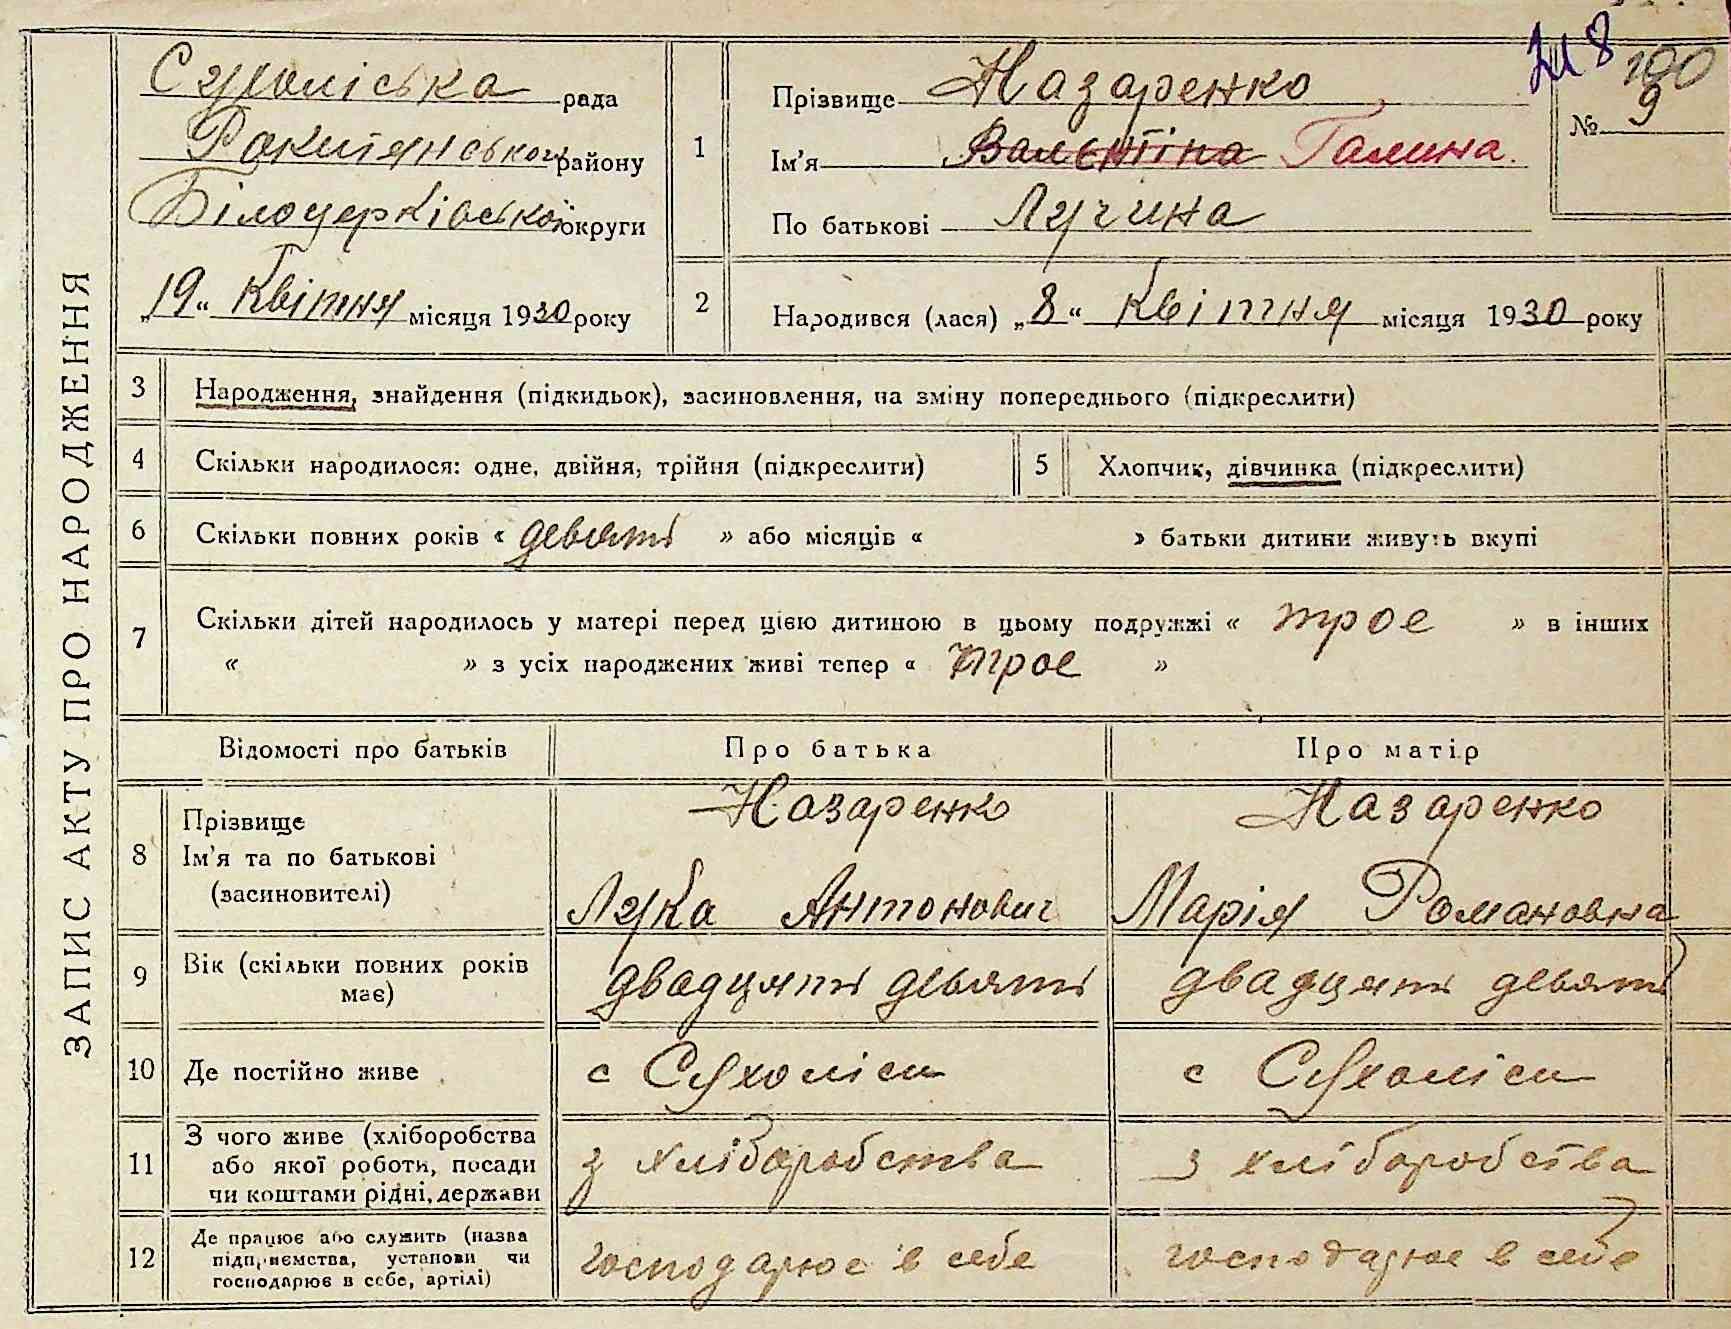 ЗАПИС АКТУ ПРО НАРОДЖЕННЯ
Сухоліська рада
Рокитянського району
Білоцерківської округи
„19“ Квітня місяця 1930 року
1
Прізвище Назаренко
Ім'я Валєнтіна Галина.
По батькові Лучина
№ 9
100
2
Народився (лася) „8“ Квітня місяця 1930 року
3 Народження, знайдення (підкидьок), засиновлення, на зміну попереднього (підкреслити)
4 Скільки народилося: одне, двійня, трійня (підкреслити)
5 Хлопчик, дівчинка (підкреслити)
6 Скільки повних років « девять » або місяців « » батьки дитини живуть вкупі
7 Скільки дітей народилось у матері перед цією дитиною в цьому подружжі « трое » в інших
« » з усіх народжених живі тепер « трое »
Відомості про батьків Про батька Про матір
8
Прізвище
Ім'я та по батькові
(засиновителі)
Назаренко
Лука Антонович
Назаренко
Марія Романовна
9
Вік (скільки повних років
має)
двадцять девять
двадцять девять
10 Де постійно живе
с Сухоліси
с Сухоліси
11
З чого живе (хліборобства
або якої роботи, посади
чи коштами рідні, держави
з хліборобства
з хліборобства
12
Де працює або служить (назва
підприємства, установи чи
господарює в себе, артілі)
господарює в себе
господарює в себе